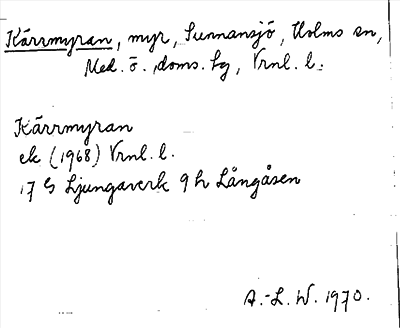 Kärrmyran, myr, Sunnansjö, Holms sn,
Med. ö. doms. lg, Vrnl. l.
Kärrmyran
ek (1968) Vrnl. l.
17 G Ljungaverk 9 h Långåsen
A.-L. W. 1970.